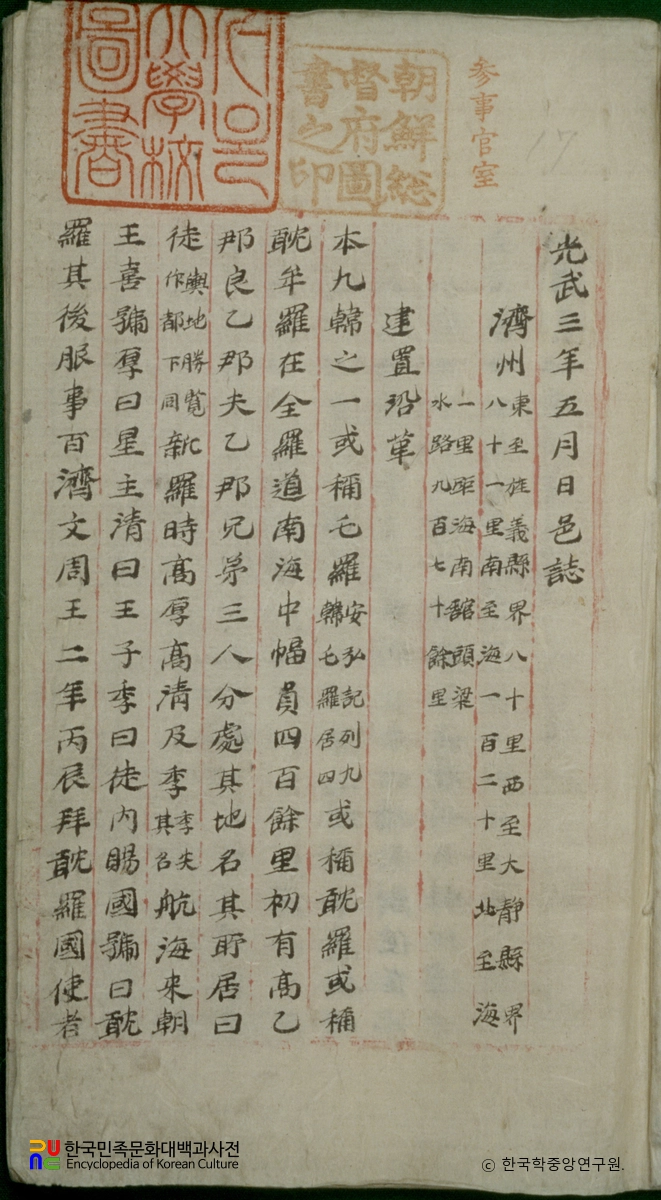 参事官室
朝鮮総
督府圖
書之印
大學校
圖書
光武三年五月日邑誌
濟州東至旌義縣界八十里西至大靜縣界
八十一里南至海一百二十里北至海
一里距海南舘頭梁
水路九百七十餘里
建置沿革
本九韓之一或稱乇羅安弘記列九
韓乇羅居四或稱耽羅或稱
耽牟羅在全羅道南海中幅員四百餘里初有高乙
那良乙那夫乙那兄弟三人分處其地名其所居曰
徒輿地勝覧
作都下同新羅時高厚高清及季季失
其名航海来朝
王喜號厚曰星主清曰王子季曰徒內賜國號曰耽
羅其後服事百濟文周王二年丙辰拜耽羅國使者
한국민족문화대백과사전
Encyclopedia of Korean Culture
© 한국학중앙연구원.